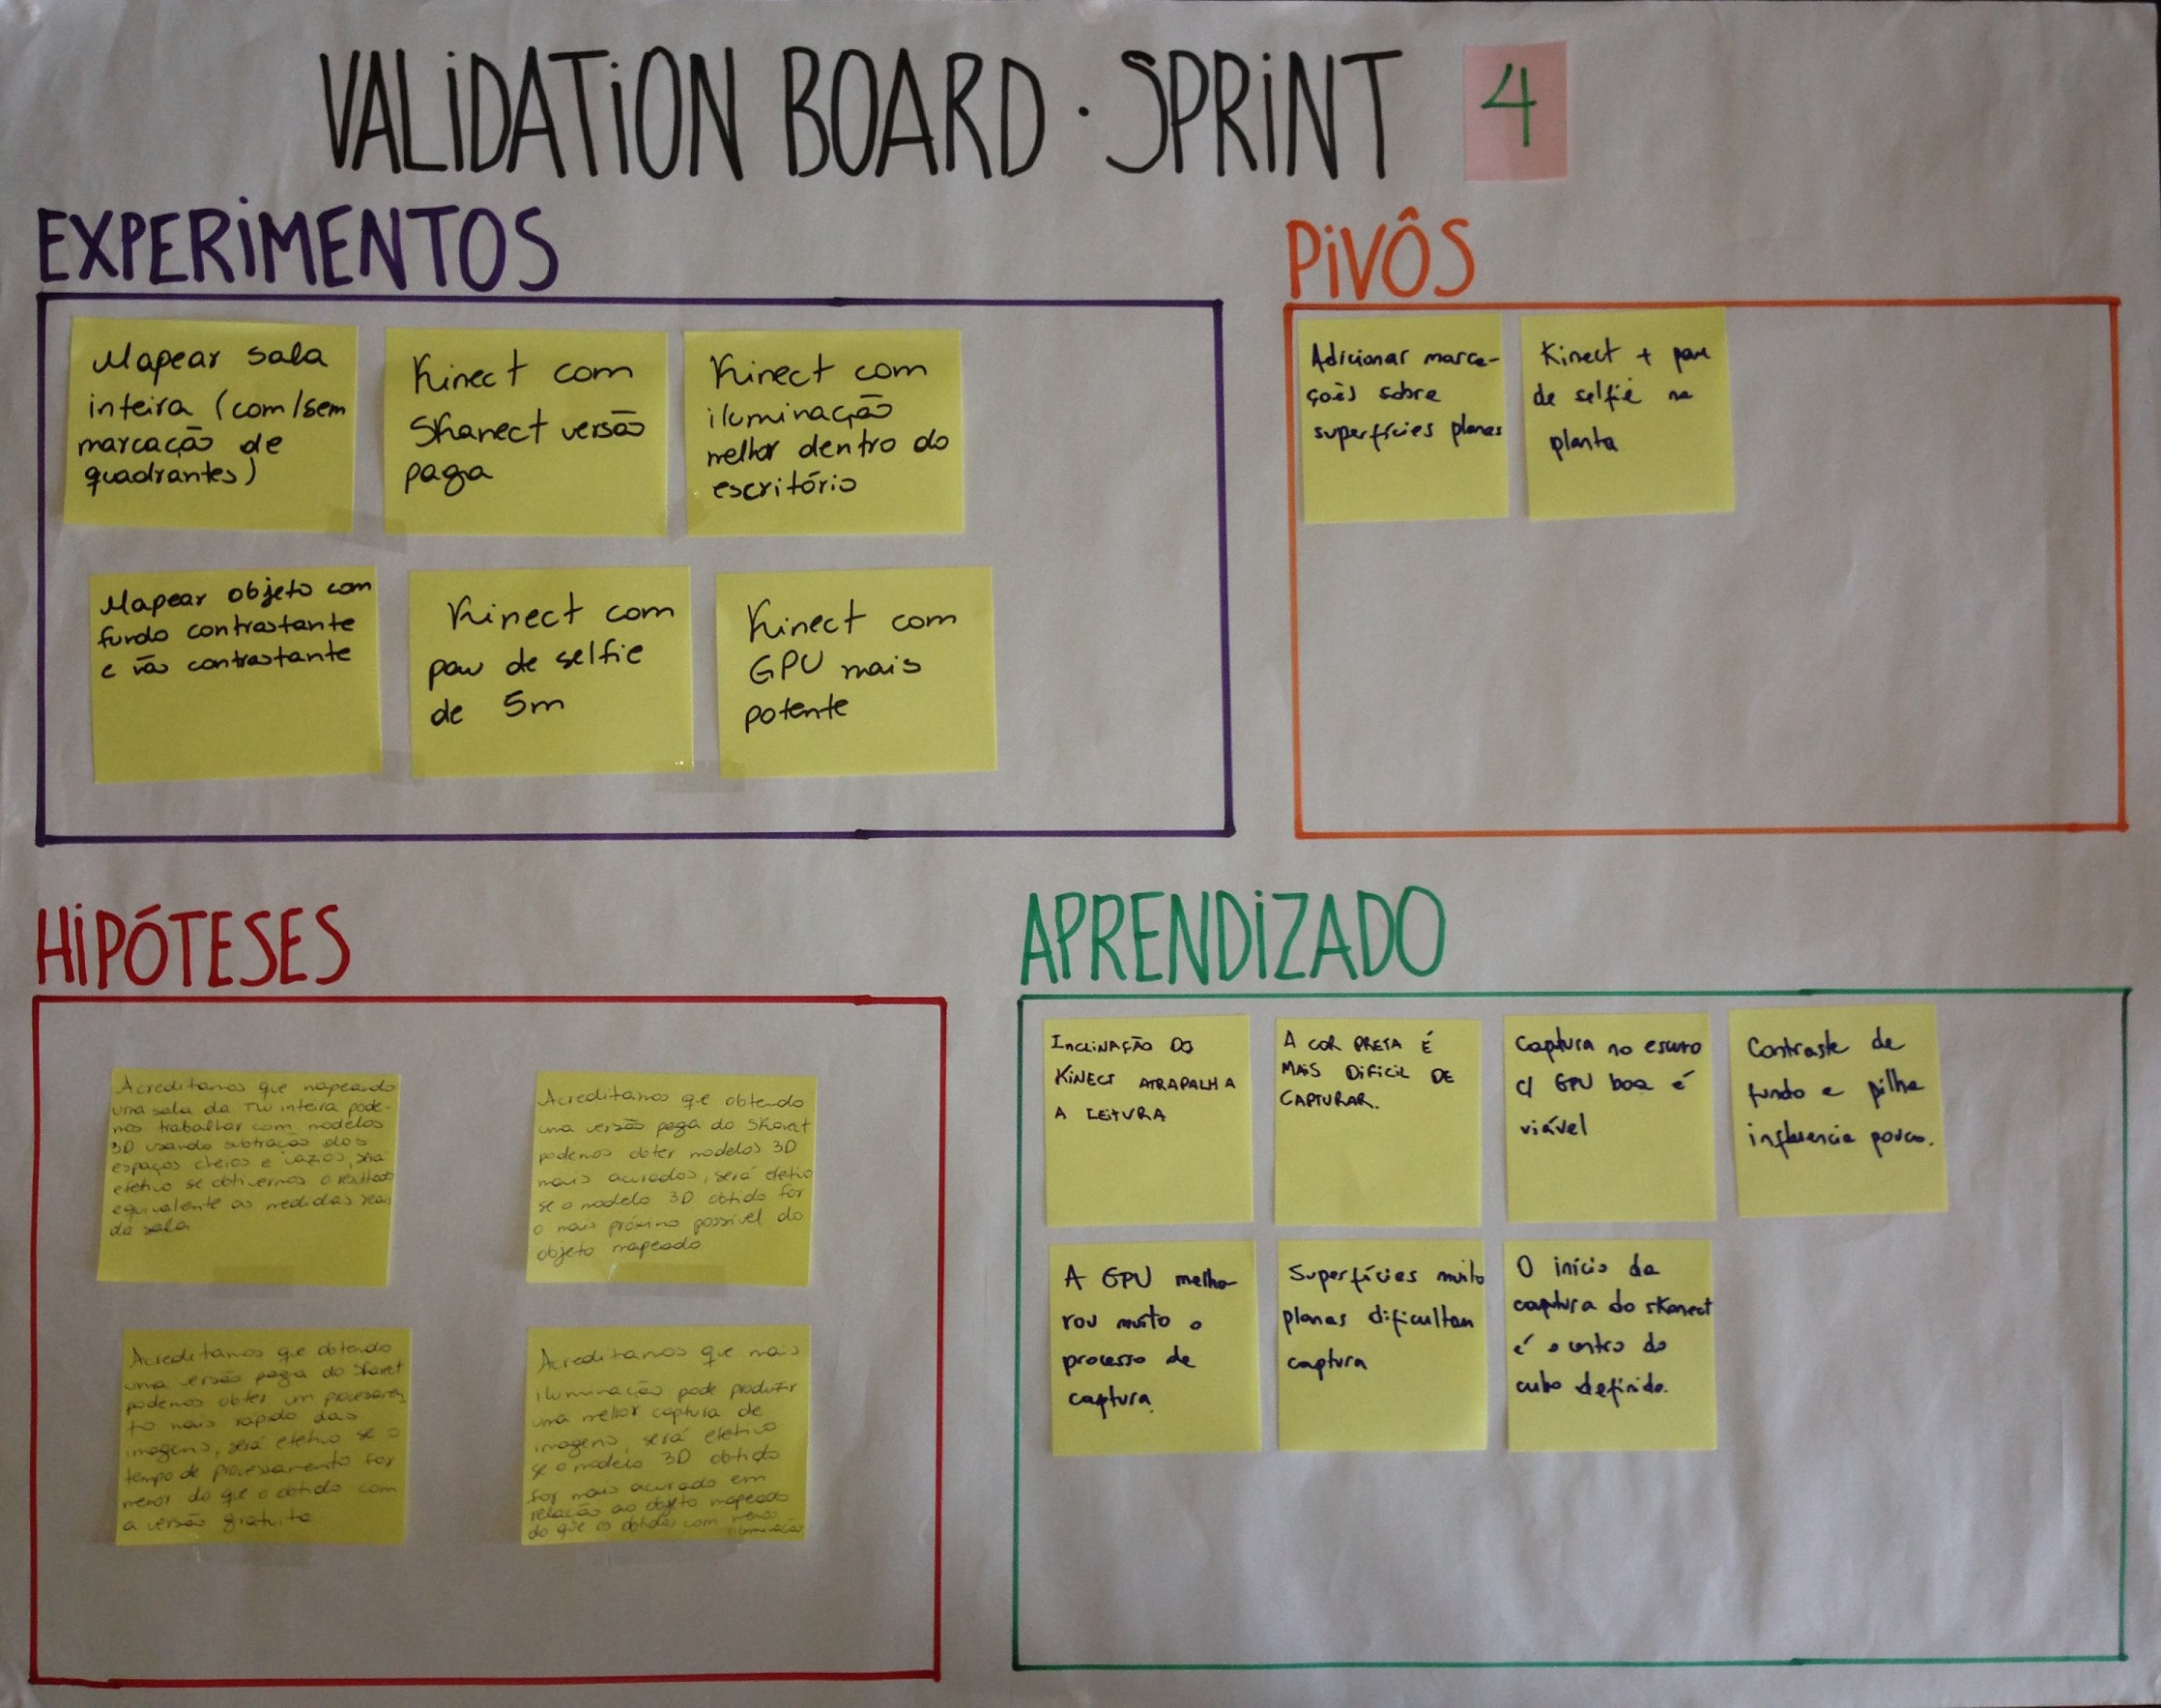 VALiDATiON BOARD · SPRiNT 4
EXPERiMENTOS
Mapear sala
inteira (com/sem
marcação de
quadrantes)
Kinect com
Skanect versão
paga
Kinect com
iluminação
melhor dentro do
escritório
Mapear objeto com
fundo contrastante
e não contrastante
Kinect com
pau de selfie
de 5m
Kinect com
GPU mais
potente
PiVÔS
Adicionar marca-
ções sobre
superfícies planas
Kinect + pau
de selfie na
planta
HiPÓTESES
Acreditamos que mapeando
uma sala da TW inteira pode-
mos trabalhar com modelos
3D usando subtração dos
espaços cheios e vazios, será
efetivo se obtivermos o resultado
equivalente as medidas reais
da sala
Acreditamos que obtendo
uma versão paga do Skanect
podemos obter modelos 3D
mais acurados, será efetivo
se o modelo 3D obtido for
o mais próximo possível do
objeto mapeado
Acreditamos que obtendo
uma versão paga do Skanect
podemos obter um processamen
to mais rápido das
imagens, será efetivo se o
tempo de processamento for
menor do que o obtido com
a versão gratuita
Acreditamos que mais
iluminação pode produzir
uma melhor captura de
imagens, será efetivo
se o modelo 3D obtido
for mais acurado em
relação ao objeto mapeado
do que os obtidos com menos
iluminação
APRENDiZADO
INCLINAÇÃO DO
KINECT ATRAPALHA
A LEITURA
A COR PRETA É
MAIS DIFICIL DE
CAPTURAR.
Captura no escuro
c/ GPU boa é
viável
Contraste de
fundo e pilha
influencia pouco.
A GPU melho-
rou muito o
processo de
captura.
Superfícies muito
planas dificultam
captura
O início da
captura do skanect
é o centro do
cubo definido.